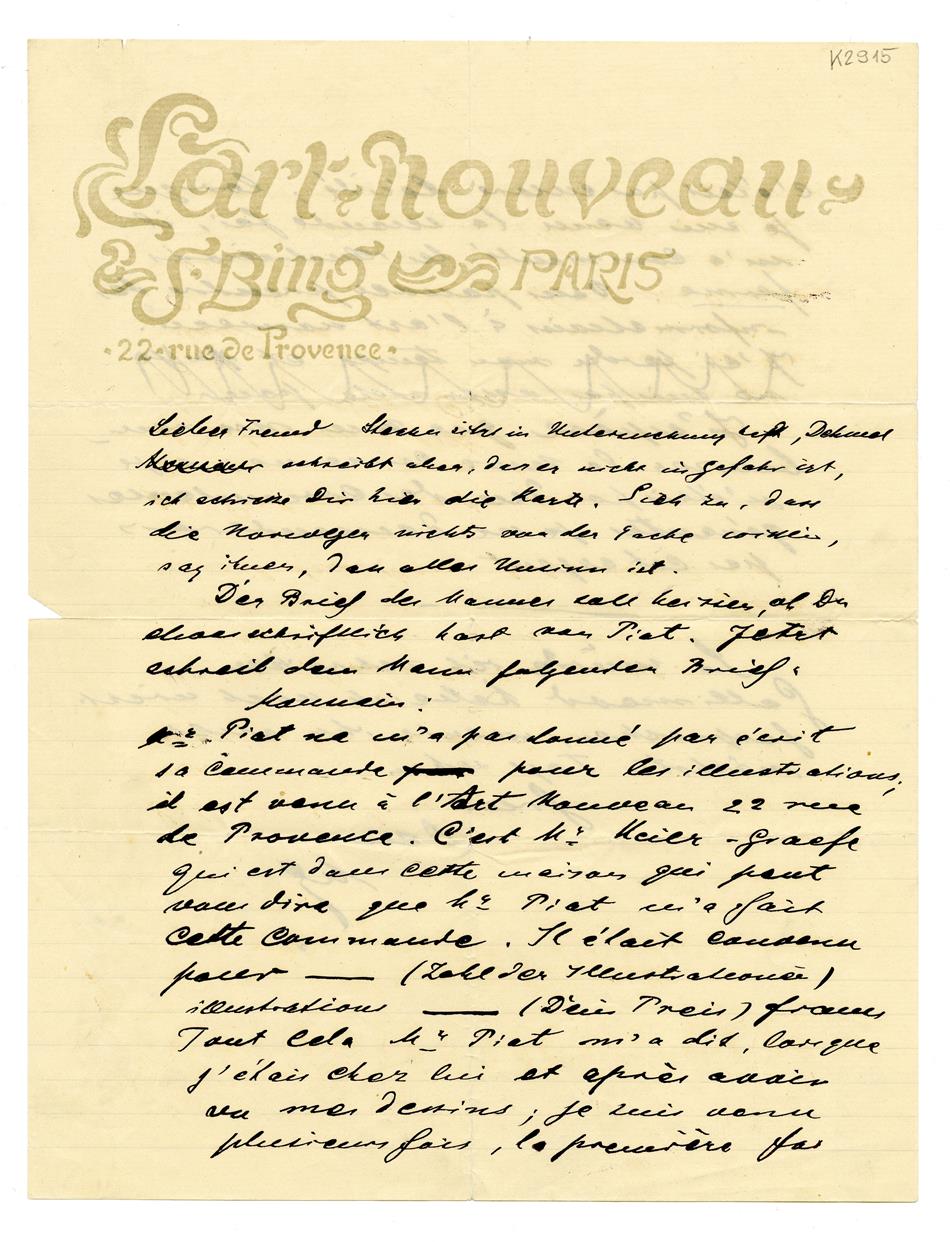 K2915
L'art-Nouveau
S. Bing PARIS
22 rue de Provence
Lieber Freund Stachu sitzt in Untersuchung haft, Dehmel
schreibt aber, dass er nicht in Gefahr ist,
ich schicke Dir hier die Karte. Sieh zu, dass
die Norweger nichts von der Sache wissen,
sag ihnen, dass alles Unsinn ist.
Der Brief des Mannes soll heissen, ob Du
etwas schriftlich hast von Piat. Jetzt
schreib dem Mann folgenden Brief:
Monsieur:
Mr. Piat ne m'a pas donné par écrit
sa commande pour les illustrations,
il est venu à l'Art Nouveau 22 rue
de Provence. C'est Mr Meier-Graefe
qui est dans cette maison qui peut
vous dire que Mr Piat m'a fait
cette commande. Il était convenu
pour — (Zahl der Illustrationen)
illustrations — (Dein Preis) francs
Tout cela Mr Piat m'a dit, lorsque
j'étais chez lui et après avoir
vu mes dessins; je suis venu
plusieurs fois, la première fois